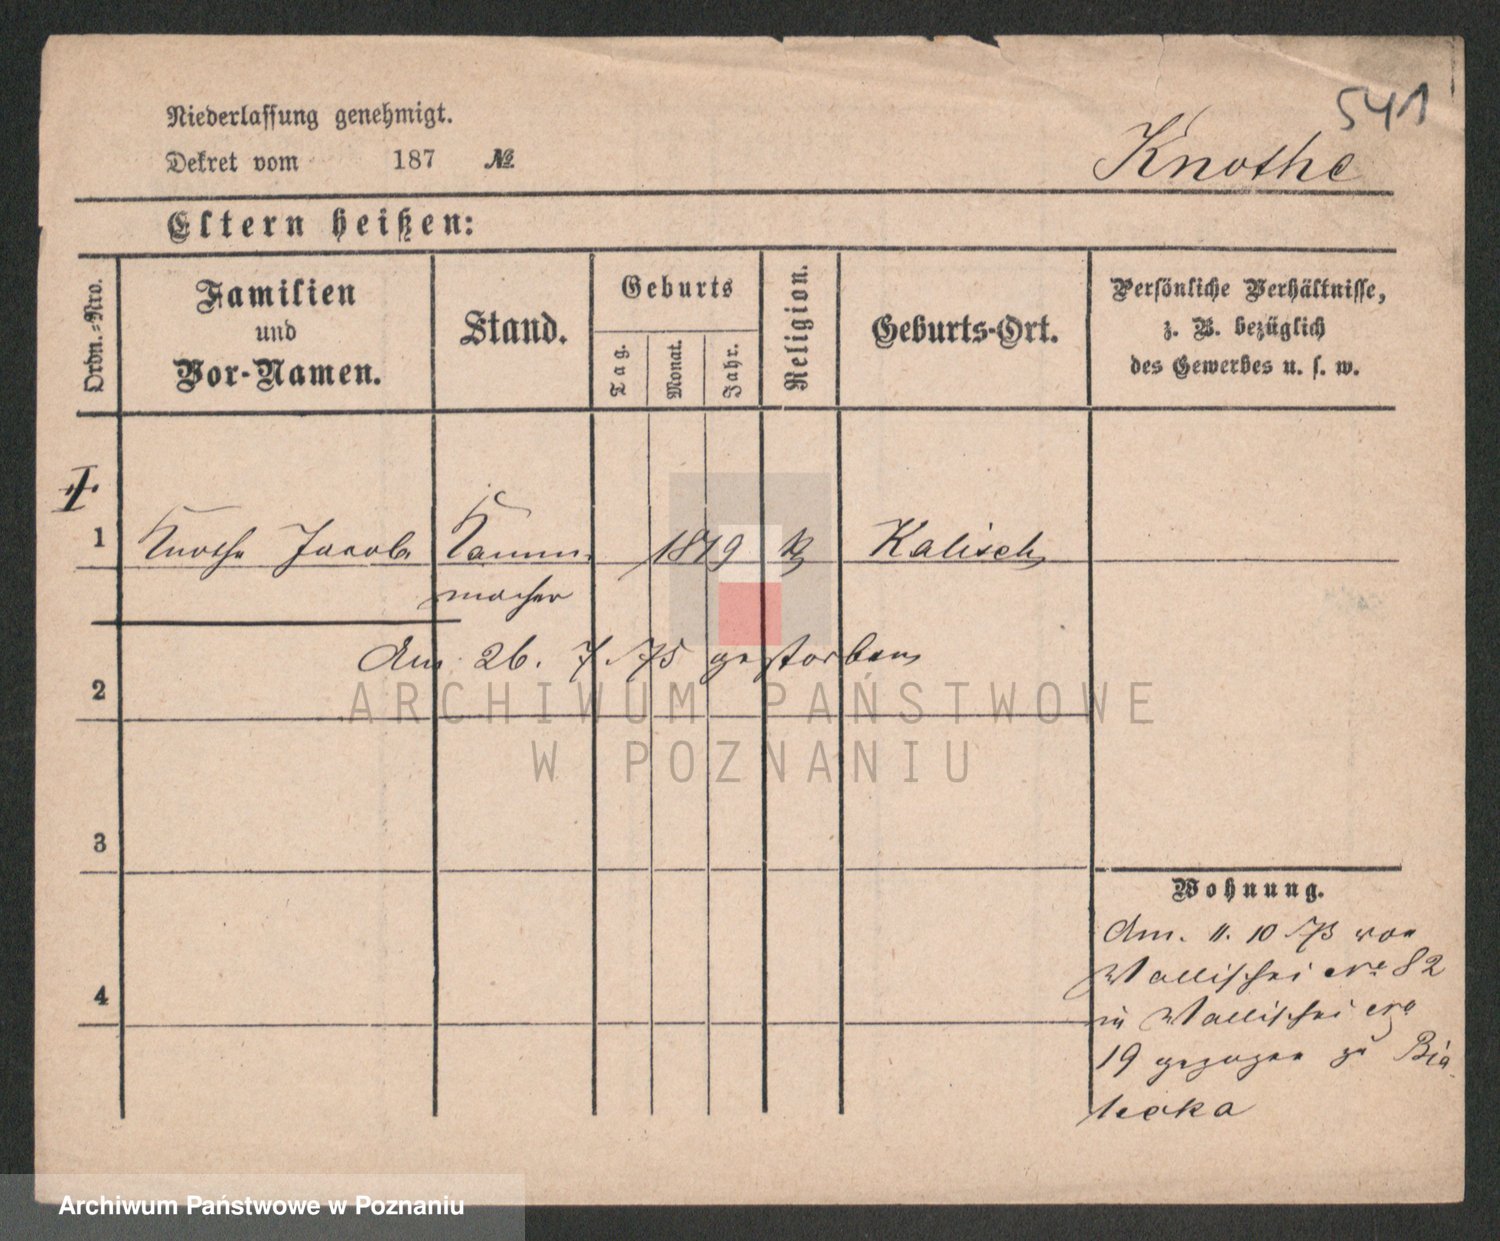 541
Niederlassung genehmigt.
Knothe
Dekret vom 187 №
Eltern heißen:
Ordn.-Nro.
Familien
und
Vor-Namen.
Stand.
Geburts
Tag.
Monat.
Jahr.
Religion.
Geburts-Ort.
Persönliche Verhältnisse,
z. B. bezüglich
des Gewerbes u. s. w.
1 Knothe Jacob Kamm- 1819 k Kalisch
macher
Am 26. 7. 75 gestorben
2
ARCHIWUM PAŃSTWOWE
W POZNANIU
3
Wohnung.
Am. 11. 10 73 von
Wallischei No 82
4
in Wallischei No
19 gezogen zu Bia-
Archiwum Państwowe w Poznaniu